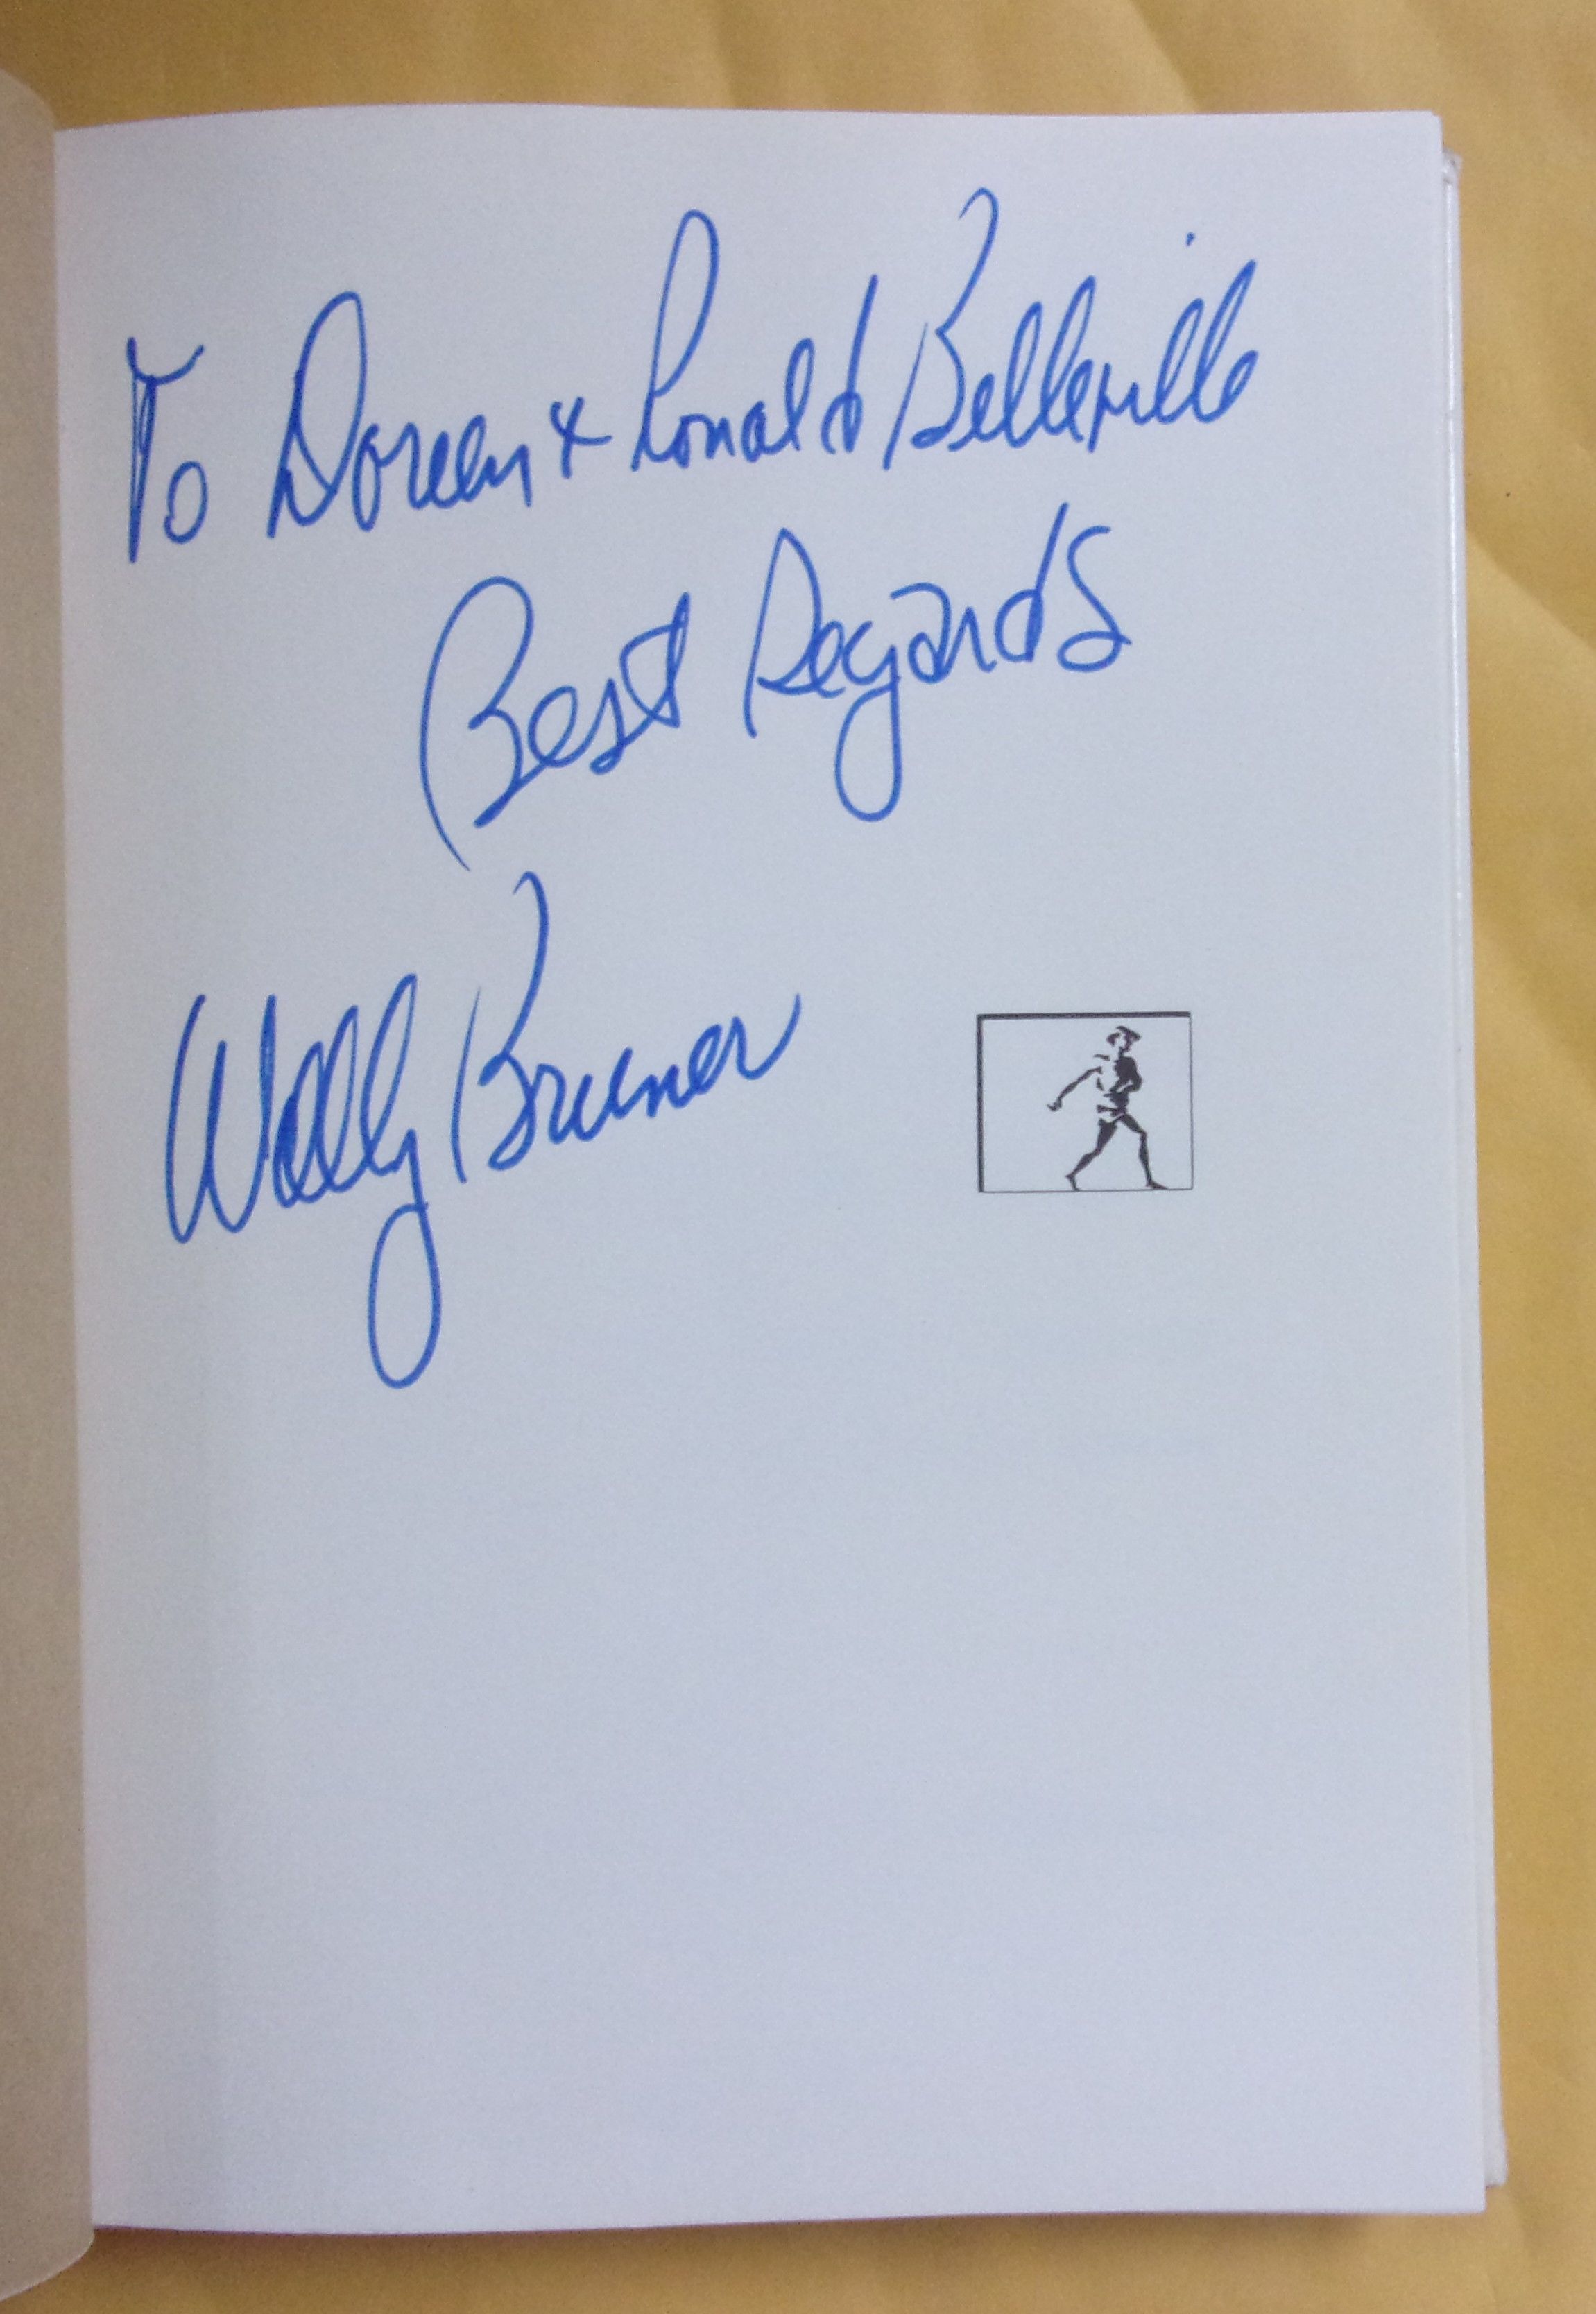 To Doreen & Ronald Belleville
Best Regards
Wally Bruner